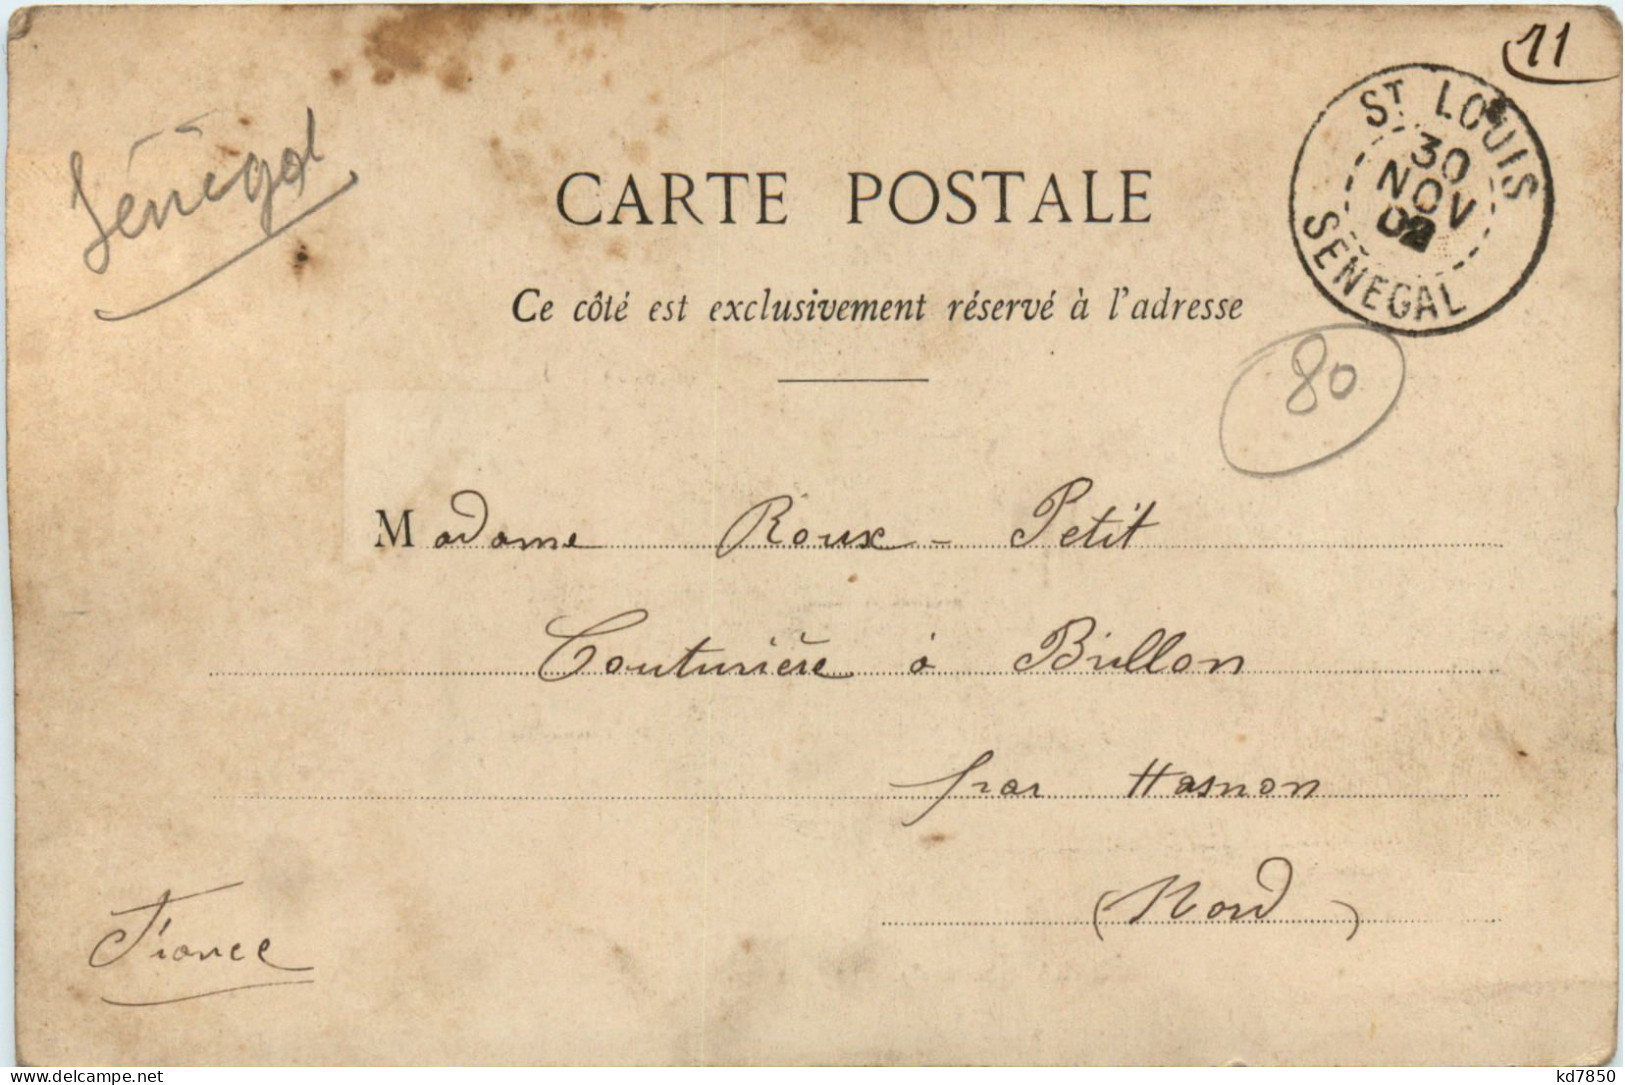 11
Sénégal
ST LOUIS
30
NOV
02
SENEGAL
CARTE POSTALE
Ce côté est exclusivement réservé à l'adresse
80
Madame Roux-Petit
Couturière à Brillon
par Hasnon
(Nord)
France
delcampe.net
kd7850